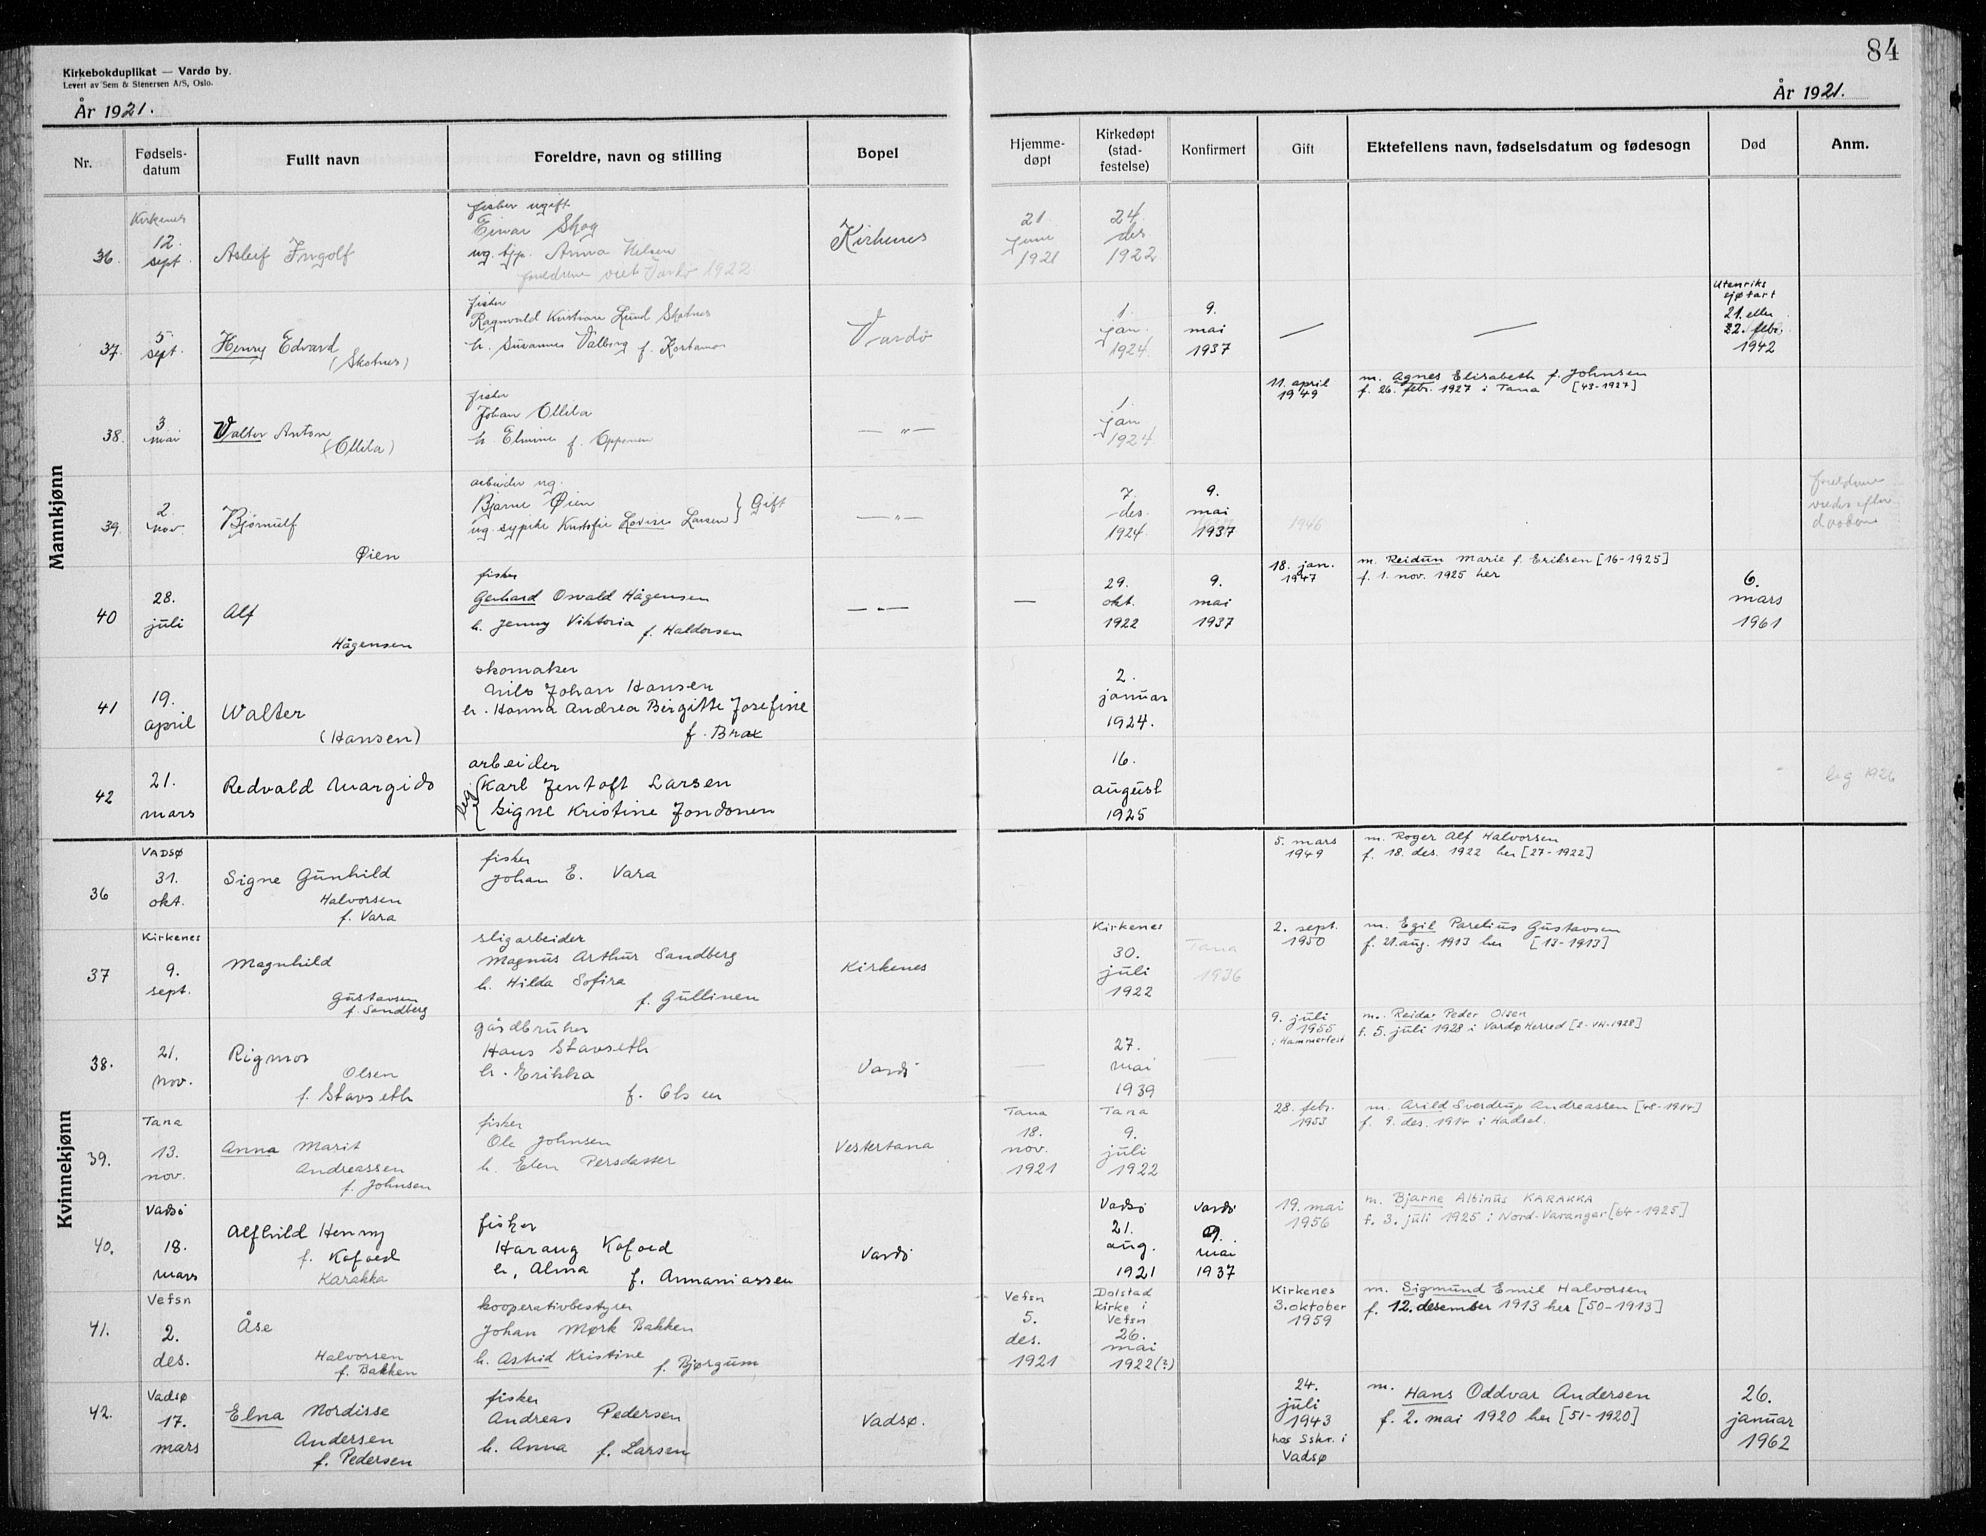 84
Kirkebokduplikat — Vardø by.
Levert av Sem & Stenersen A/S, Oslo.
År 1921.
År 1921.
Nr. Fødsels-datum Fullt navn Foreldre, navn og stilling Bopel Hjemme-døpt Kirkedøpt (stad-festelse) Konfirmert Gift Ektefellens navn, fødselsdatum og fødesogn Død Anm.
Mannkjønn
Kirkenes
36. 12. sept Ingolf
fisker ugift
Einar Skog
ug. Anna
foreldrene viet Vardø 1922
Kirkenes
21 juni 1921
24. des 1922
37. 5. sept. Henry Edvard
(Skotnes)
fisker
Ragnvald Kristian Lund Skotnes
h. Susanna Valborg f.
Vardö
1. jan. 1924.
9. mai 1937
— —
Utenriks
sjøfart
21. eller
22. febr.
1942
38. 3. mai Valter Anton
(Ollila)
fisker
Johan Ollila
h. Elmine f.
— " —
1. jan 1924.
11. april 1949
m. Agnes Elisabeth f. Johnsen
f. 26. febr. 1927 i Tana [43-1927]
39. 2. nov. Bjørnulf
Øien
arbeider ug.
Bjarne Øien } Gift
ug. Lovise Larsen
— " —
7. des. 1924.
9. mai 1937
1946
foreldrene
viet efter
40 28. juli Alf
Hågensen
fisker
Gerhard Osvald Hågensen
h. Jenny Viktoria f. Haldorsen
— " —
—
29. okt. 1922
9. mai 1937
18. jan. 1947
m. Reidun Marie f. Eriksen [16-1925]
f. 1. nov. 1925 her
6. mars 1961
41 19. april Walter
(Hansen)
skomaker
Nils Johan Hansen
h. Hanna Andrea Birgitte Josefine
f. Brax
2. januar 1924.
42 21. mars Redvald Margido
arbeider
Karl Jentoft Larsen
Signe Kristine Jondonen
16. august 1925
leg 1926
Kvinnekjønn
VADSØ
36 31. okt. Signe Gunhild
Halvorsen
f. Vara
fisker
Johan E. Vara
5. mars 1949
m. Roger Alf Halvorsen
f. 18. des. 1922 her [27-1922]
Kirkenes
37 9. sept. Magnhild
Gustavsen
f. Sandberg
sligarbeider
Magnus Arthur Sandberg
h. Hilda Sofira
f. Gullinen
Kirkenes
Kirkenes
30. juli 1922
Tana 1936
2. sept. 1950
m. Egil Parelius Gustavsen
f. 21. aug. 1913 her [13-1913]
38. 21. nov. Rigmor
Olsen
f. Stavseth
gårdbruker
Hans Stavseth
h. Erikka
f. Olsen
Vardö
—
27. mai 1939
—
9. juli 1955
i Hammerfest
m. Reidar Peder Olsen
f. 5. juli 1928 i Vardø Herred [2-VH-1928]
Tana
39. 13. nov. Anna Marit
Andreassen
f. Johnsen
fisker
Ole Johnsen
h. Elen Persdatter
Vestertana
Tana 18. nov. 1921
Tana 9. juli 1922
28. febr. 1953
m. Arild Sverdrup Andreassen [48-1914]
f. 9. des. 1914 i Hadsel.
Vadsö
40. 18. mars Alfhild Henny
f. Kofoed
Karakka
fisker
Harang Kofoed
h. Alma f. Annaniassen
Vardö
Vadsö 21. aug. 1921
Vardö 9. mai 1937
19. mai 1956
m. Bjarne Albinus KARAKKA
f. 3. juli 1925 i Nord-Varanger [64-1925]
Vefsn
41. 2. des. Åse
Halvorsen
f. Bakken
kooperativbestyrer
Johan Mørk Bakken
h. Astrid Kristine f. Bjørgum
Vefsn 5. des. 1921
Dolstad kirke i Vefsn 26. mai 1922(?)
Kirkenes 3. oktober 1959
m. Sigmund Emil Halvorsen
f. 12. desember 1913 her [50-1913]
Vadsø
42. 17. mars Elna Nordisse
Andersen
f. Pedersen
fisker
Andreas Pedersen
h. Anna f. Larsen
Vadsø.
24. juli 1943
hos Sskr. i
Vadsø
m. Hans Oddvar Andersen
f. 2. mai 1920 her [51-1920]
26. januar 1962